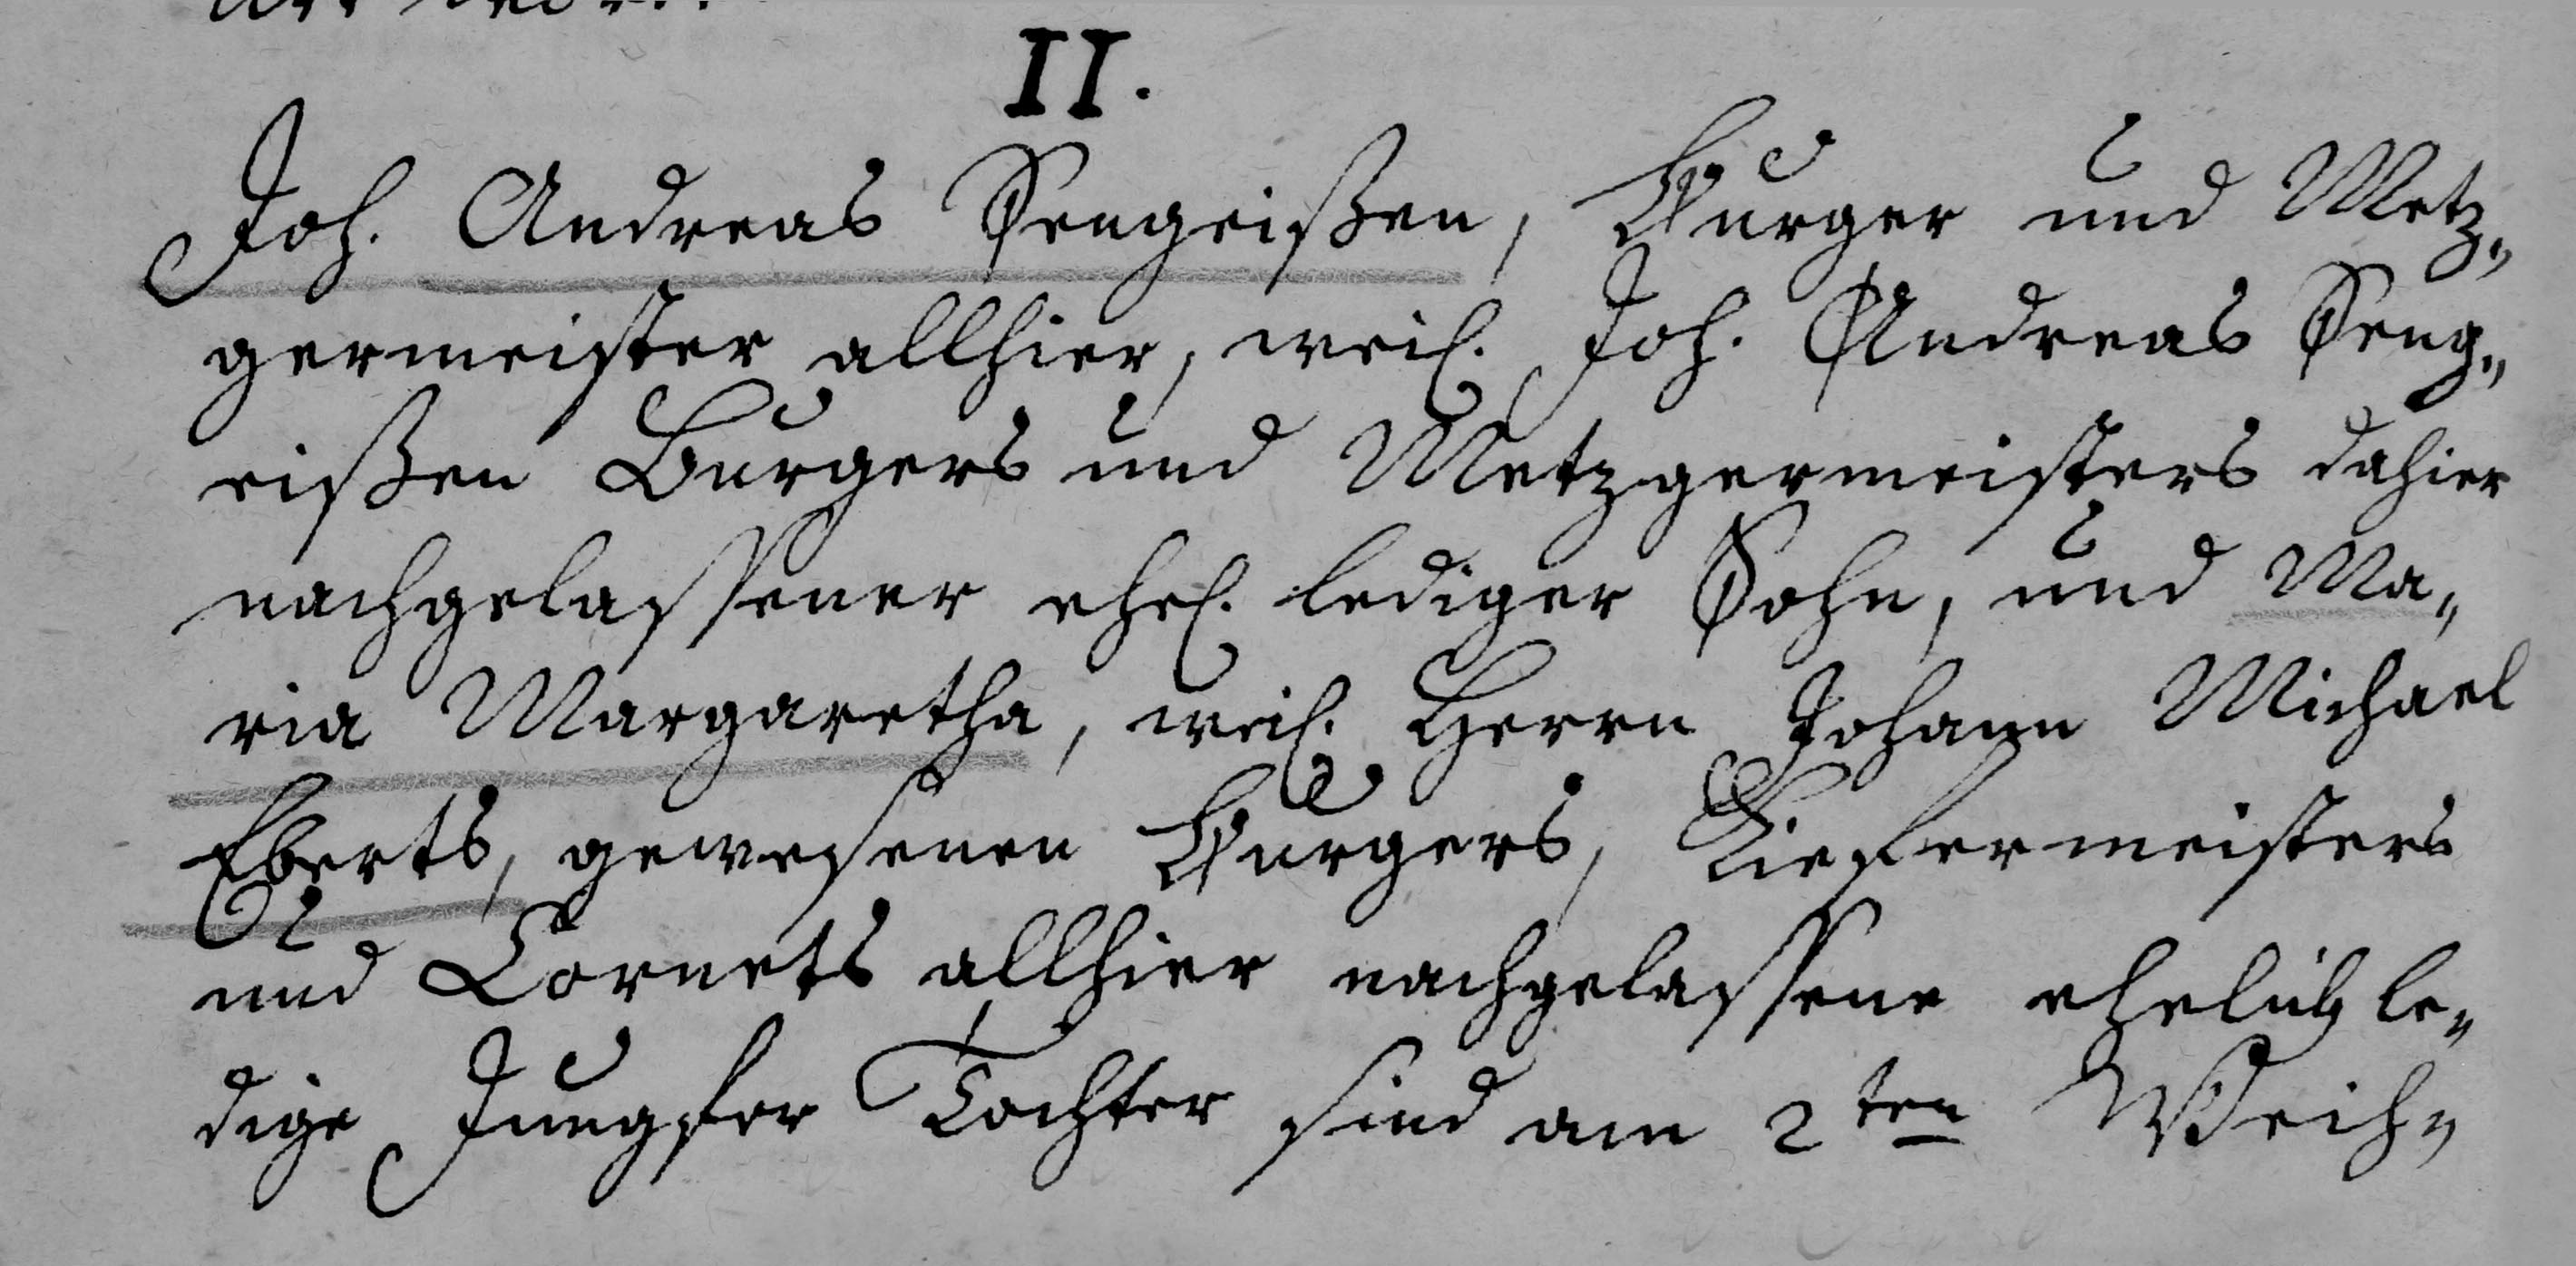 II.
Joh. Andreas Sengeißen, Burger und Metz„
germeister allhier, weil. Joh. Andreas Seng„
eißen Burgers und Metzgermeisters dahier
nachgelassener ehel. lediger Sohn, und Ma„
ria Margaretha, weil. Herrn Johann Michael
Eberts, gewesenen Burgers, Kiefermeisters
und Cornets allhier nachgelassene ehelich le„
dige Jungfer Tochter sind am 2ten Weih„